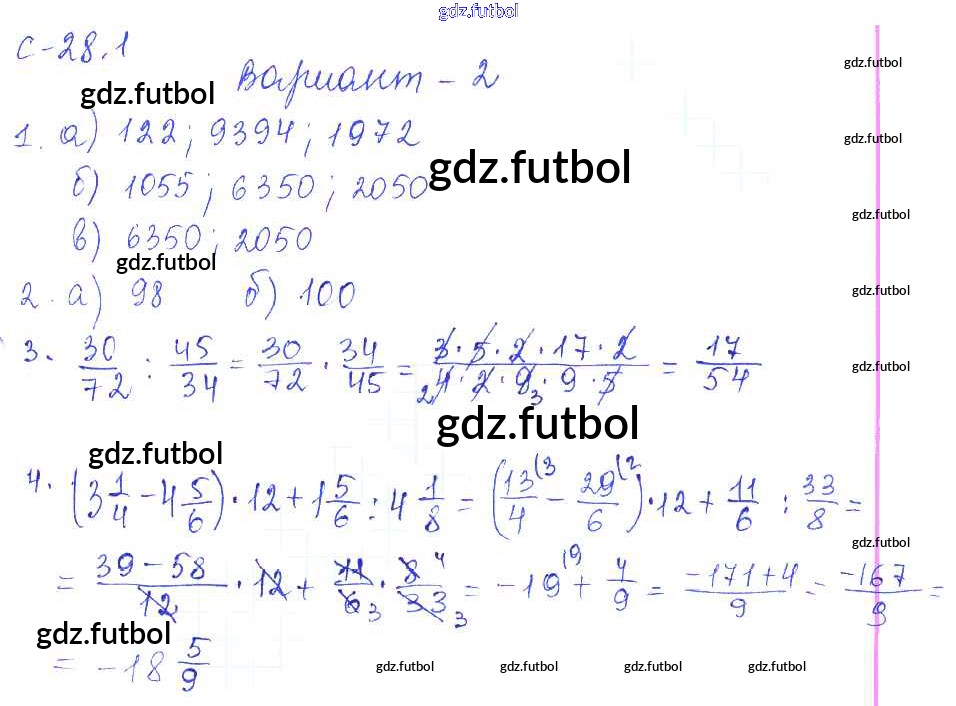 gdz.futbol
С-28.1
Вариант - 2
gdz.futbol
gdz.futbol
1. а) 122; 9394; 1972
gdz.futbol
gdz.futbol
б) 1055; 6350; 2050
gdz.futbol
в) 6350; 2050
gdz.futbol
2. а) 98 б) 100
gdz.futbol
3. 30/72 : 45/34 = 30/72 · 34/45 = 3·5·2·17·2/4·2·9·9·5 2 3 = 17/54
gdz.futbol
gdz.futbol
gdz.futbol
4. (3 1/4 - 4 5/6) · 12 + 1 5/6 : 4 1/8 = (13/4 (3 - 29/6 (2) · 12 + 11/6 : 33/8 =
gdz.futbol
= 39-58/12 · 12 + 11/6 3 · 8 4/33 3 = -19 (9 + 4/9 = -171+4/9 = -167/9 =
gdz.futbol
= -18 5/9
gdz.futbol gdz.futbol gdz.futbol gdz.futbol